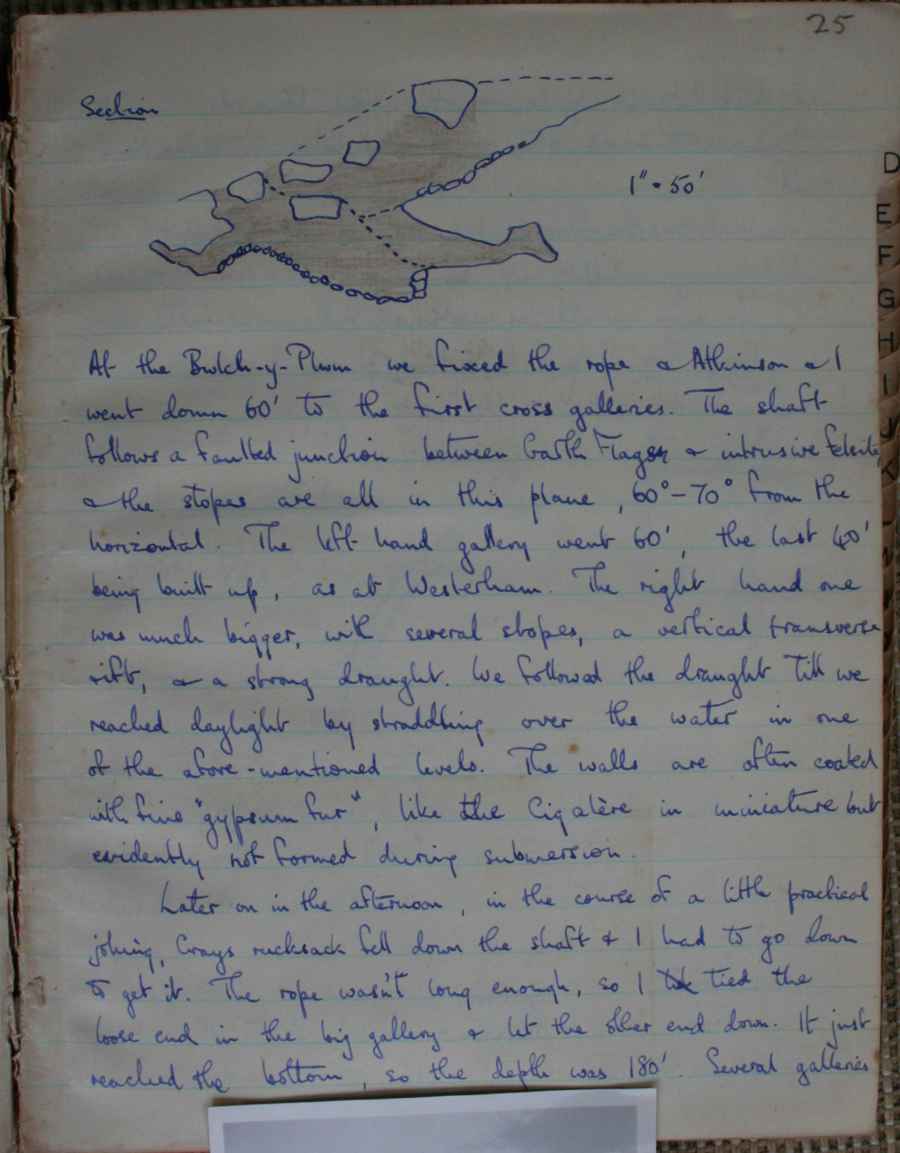 25
Section
1" = 50'
D
E
F
G
H
I
J
K
At the Bwlch-y-Plwm we fixed the rope & Atkinson & I
went down 60' to the first cross galleries. The shaft
follows a faulted junction between Garth Flags & intrusive felsite
& the stopes are all in this plane, 60°–70° from the
horizontal. The left hand gallery went 60', the last 40'
being built up, as at Westerham. The right hand one
was much bigger, with several stopes, a vertical transverse
rift, & a strong draught. We followed the draught till we
reached daylight by straddling over the water in one
of the afore-mentioned levels. The walls are often coated
with fine "gypsum fur", like the Cigalère in miniature but
evidently not formed during submersion.
Later on in the afternoon, in the course of a little practical
joking, Grays rucksack fell down the shaft & I had to go down
to get it. The rope wasn't long enough, so I tied the
loose end in the big gallery & let the other end down. It just
reached the bottom, so the depth was 180'. Several galleries